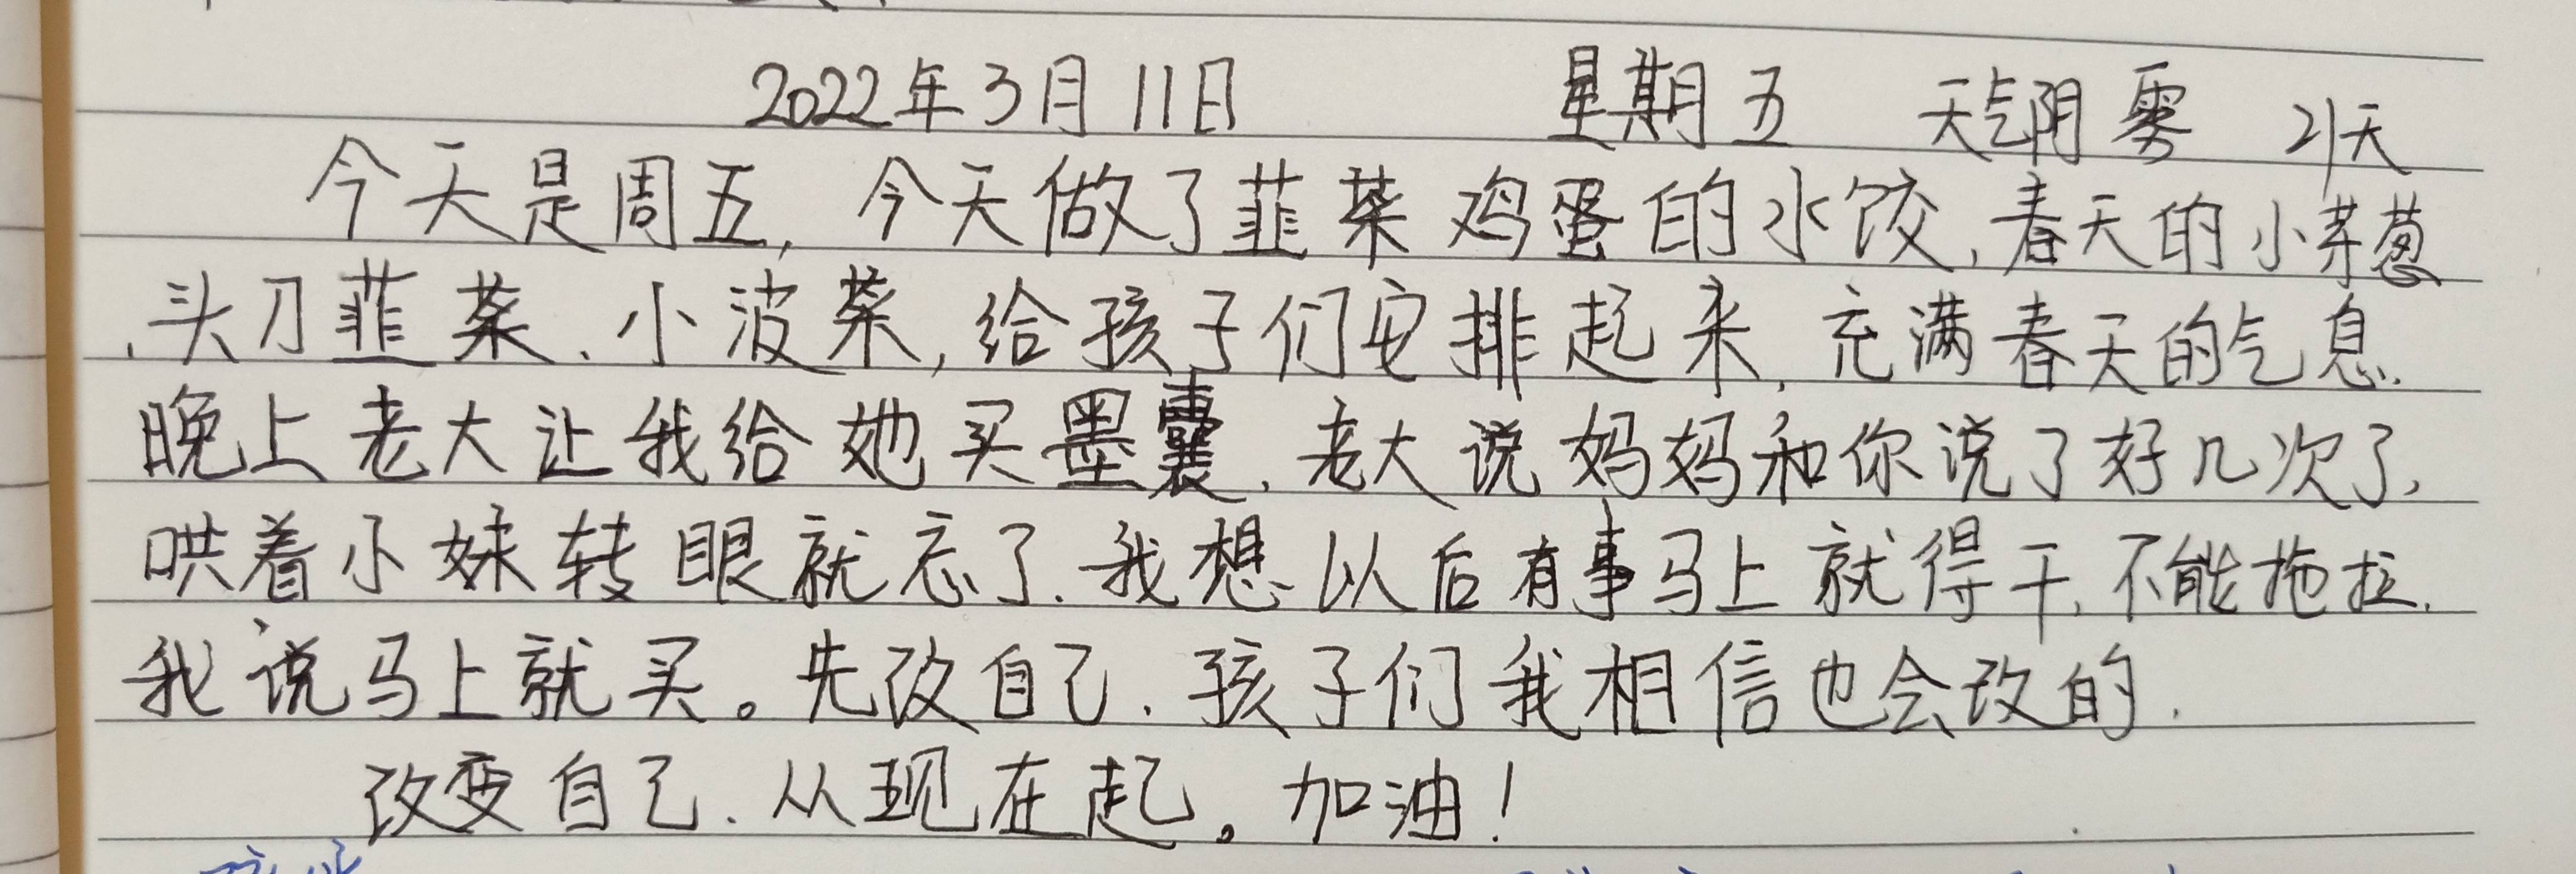 2022年3月11日 星期五 天气阴雾 21天
今天是周五,今天做了韮菜鸡蛋的水饺,春天的小芽葱
、头刀韮菜、小波菜,给孩子们安排起来,充满春天的气息.
晚上老大让我给她买墨囊,老大说妈妈和你说了好几次了,
哄着小妹转眼就忘了.我想以后有事马上就得干,不能拖拉.
我说马上就买。先改自己.孩子们我相信也会改的.
改变自己.从现在起。加油!